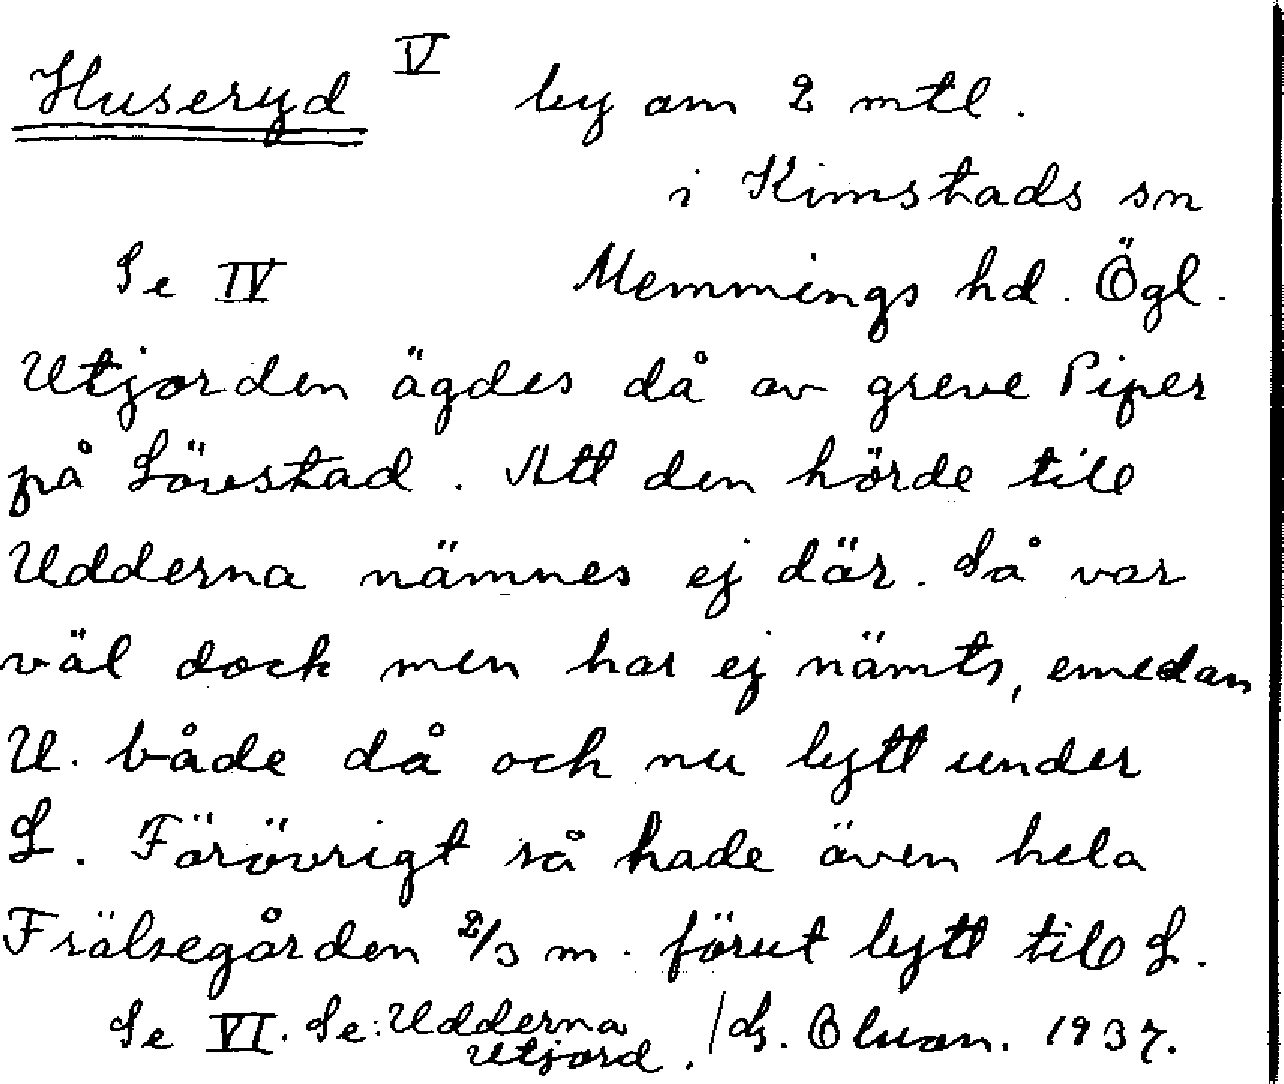 Huseryd V by om 2 mtl.
i Kimstads sn
Se IV Memmings hd. Ögl.
Utjorden ägdes då av greve Piper
på Lövstad. Att den hörde till
Udderna nämnes ej där. Så var
väl dock men har ej nämts, emedan
U. både då och nu lytt under
L. Förövrigt så hade även hela
Frälsegården 2/3 m. förut lytt till L.
Se VI. Se: Udderna
utjord. 1937.